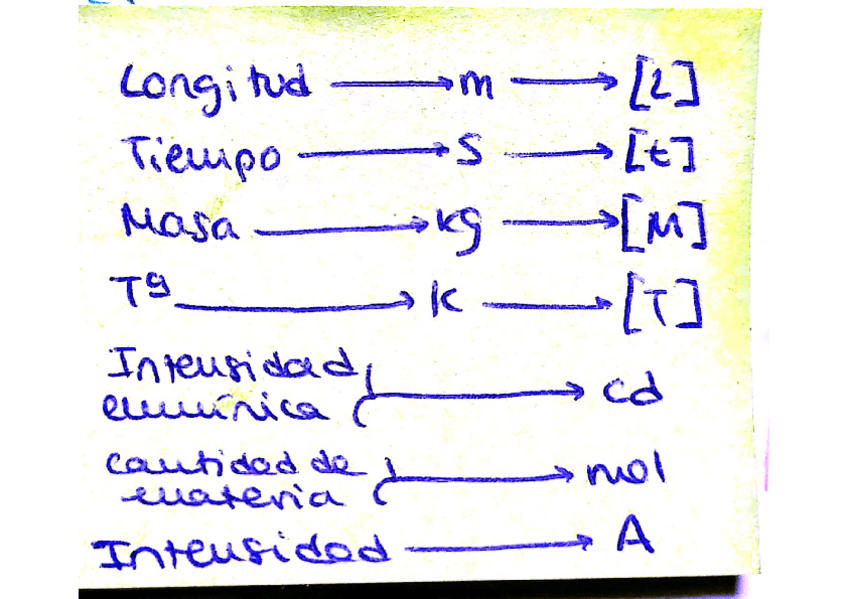 Longitud → m → [L]
Tiempo → s → [t]
Masa → kg → [M]
Tª → K → [T]
Intensidad
→ cd
cantidad de
materia → mol
Intensidad → A